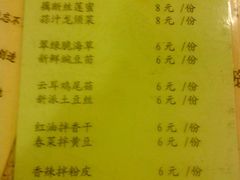 藕断丝莲蜜 8 元 /份
蒜汁龙须菜 8 元 /份
翠绿脆海草 6 元 /份
新鲜豌豆苗 6 元 /份
云耳鸡尾菇 6 元 /份
新派土豆丝 6 元 /份
红油拌香干 6 元 /份
春菜拌黄豆 6 元 /份
香辣拌粉皮 6 元 /份